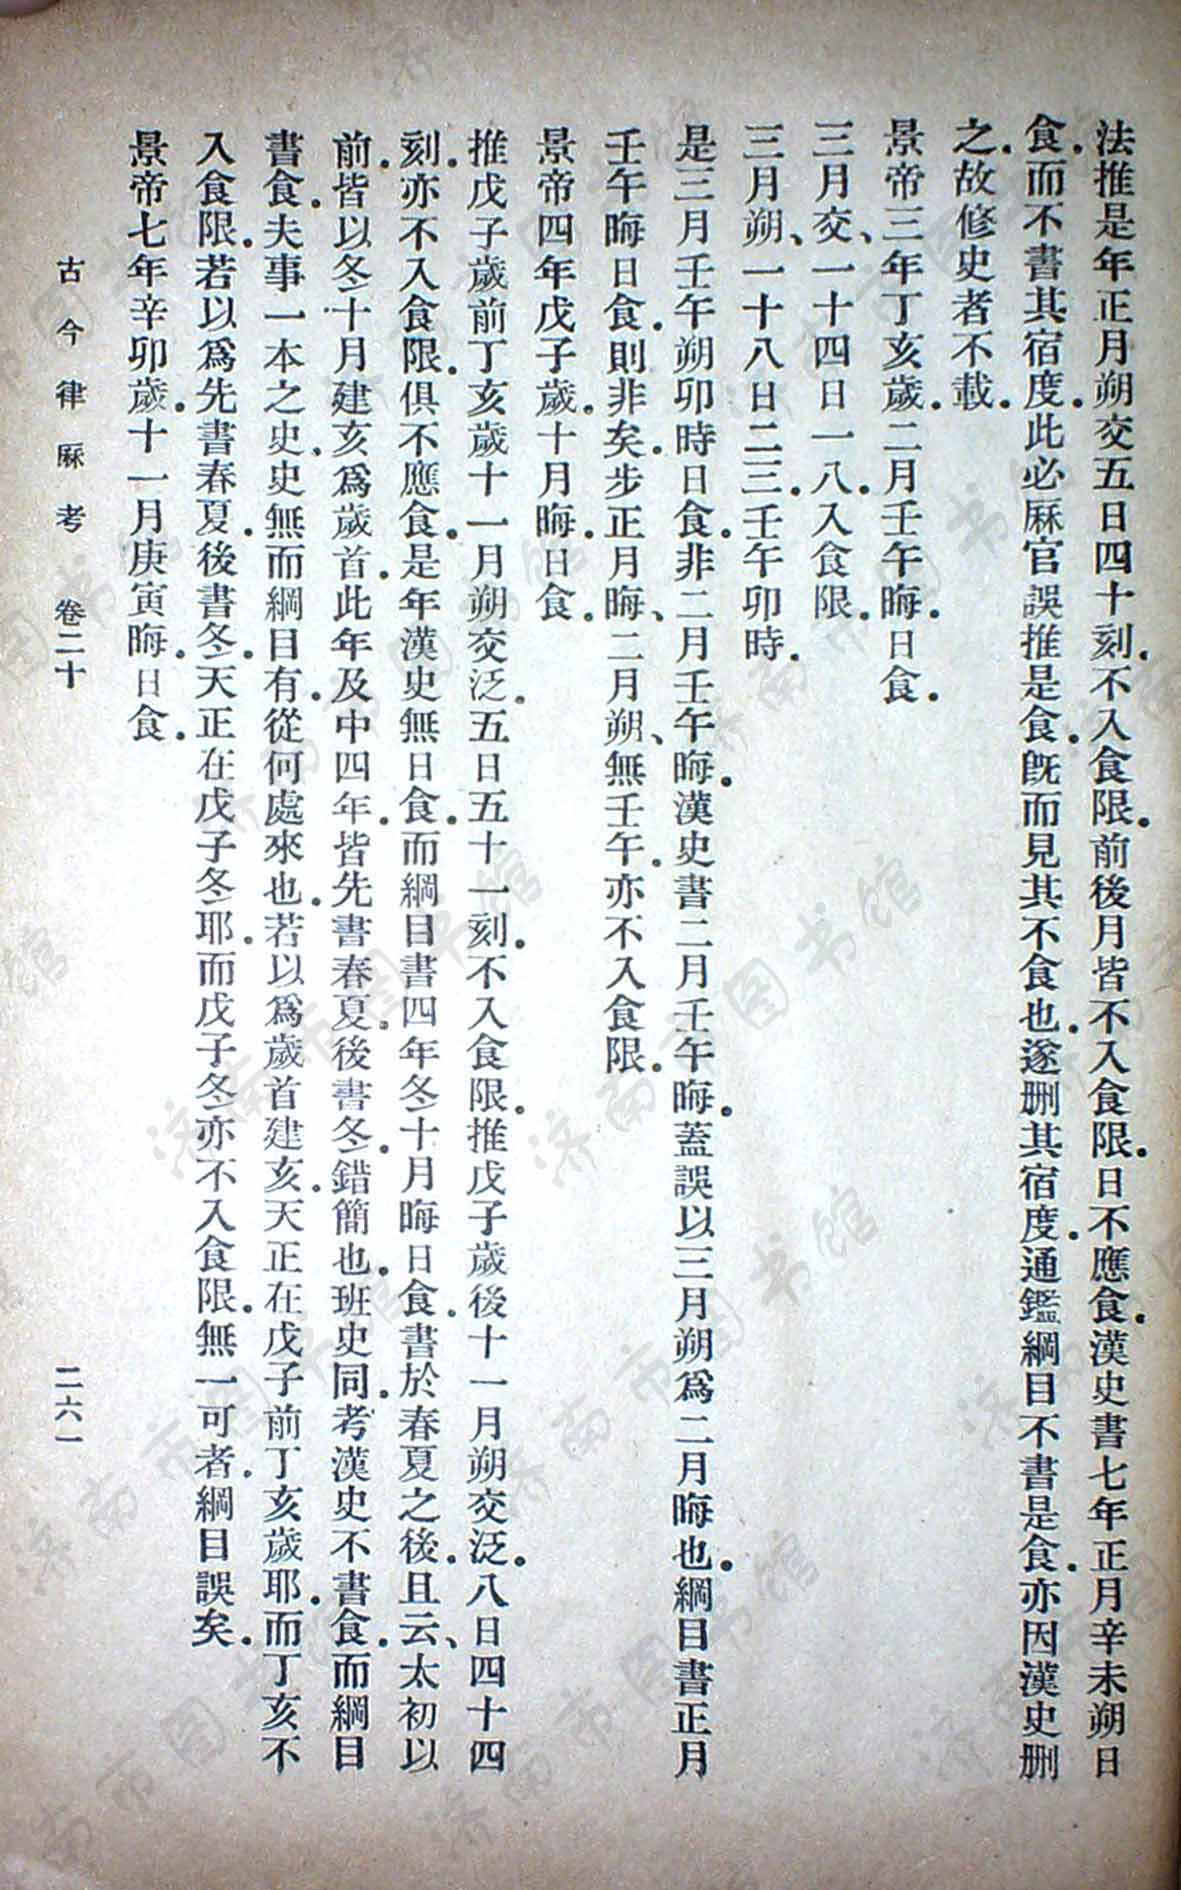 法推是年正月朔交五日四十刻.不入食限.前後月皆不入食限.日不應食.漢史書七年正月辛未朔日
食.而不書其宿度.此必厤官誤推是食.旣而見其不食也.遂删其宿度.通鑑綱目不書是食.亦因漢史删
之.故修史者不載.
景帝三年丁亥歲.二月壬午晦.日食.
三月交、一十四日一八.入食限.
三月朔、一十八日二三.壬午卯時.
是三月壬午朔卯時日食.非二月壬午晦.漢史書二月壬午晦.蓋誤以三月朔爲二月晦也.綱目書正月
壬午晦日食.則非矣.步正月晦、二月朔、無壬午.亦不入食限.
景帝四年戊子歲.十月晦.日食.
推戊子歲前丁亥歲十一月朔交泛.五日五十一刻.不入食限.推戊子歲後十一月朔交泛.八日四十四
刻.亦不入食限.俱不應食.是年漢史無日食.而綱目書四年冬十月晦日食.書於春夏之後.且云、太初以
前.皆以冬十月建亥爲歲首.此年及中四年.皆先書春夏.後書冬.錯簡也.班史同.考漢史不書食.而綱目
書食.夫事一本之史.史無而綱目有.從何處來也.若以爲歲首建亥.天正在戊子前丁亥歲耶.而丁亥不
入食限.若以爲先書春夏.後書冬.天正在戊子冬耶.而戊子冬亦不入食限.無一可者.綱目誤矣.
景帝七年辛卯歲.十一月庚寅晦.日食.
古今律厤考 卷二十 二六一
济南市图书馆